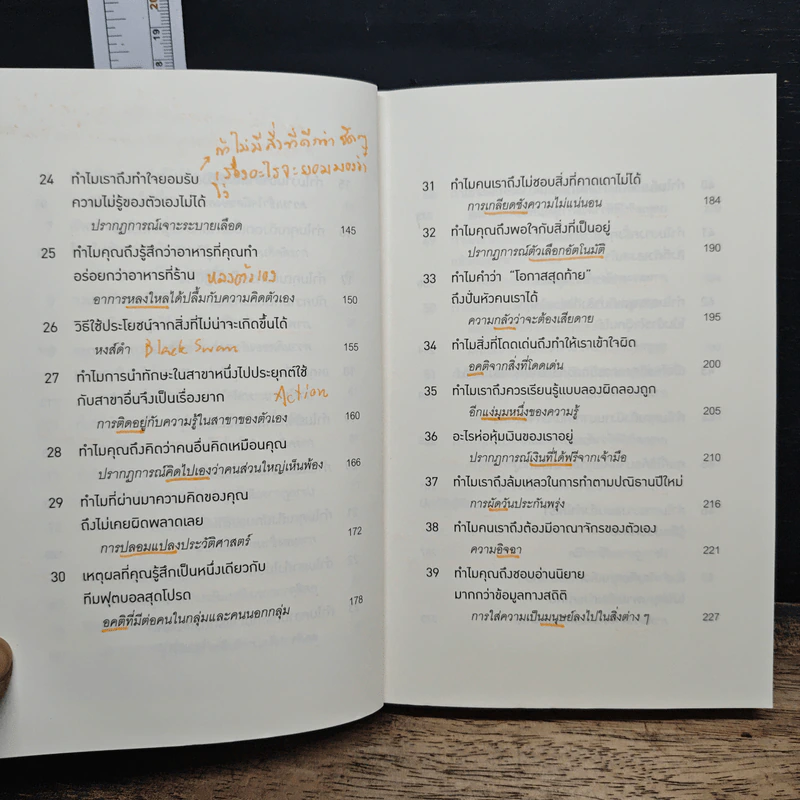 20
19
18
ถ้าไม่มีสิ่งที่ดีกว่า
24 ทำไมเราถึงทำใจยอมรับ
ความไม่รู้ของตัวเองไม่ได้
ปรากฏการณ์เจาะระบายเลือด 145
25 ทำไมคุณถึงรู้สึกว่าอาหารที่คุณทำ
อร่อยกว่าอาหารที่ร้าน หลงตัวเอง
อาการหลงใหลได้ปลื้มกับความคิดตัวเอง 150
26 วิธีใช้ประโยชน์จากสิ่งที่ไม่น่าจะเกิดขึ้นได้
หงส์ดำ Black Swan 155
27 ทำไมการนำทักษะในสาขาหนึ่งไปประยุกต์ใช้
กับสาขาอื่นจึงเป็นเรื่องยาก Action
การติดอยู่กับความรู้ในสาขาของตัวเอง 160
28 ทำไมคุณถึงคิดว่าคนอื่นคิดเหมือนคุณ
ปรากฏการณ์คิดไปเองว่าคนส่วนใหญ่เห็นพ้อง 166
29 ทำไมที่ผ่านมาความคิดของคุณ
ถึงไม่เคยผิดพลาดเลย
การปลอมแปลงประวัติศาสตร์ 172
30 เหตุผลที่คุณรู้สึกเป็นหนึ่งเดียวกับ
ทีมฟุตบอลสุดโปรด
อคติที่มีต่อคนในกลุ่มและคนนอกกลุ่ม 178
31 ทำไมคนเราถึงไม่ชอบสิ่งที่คาดเดาไม่ได้
การเกลียดชังความไม่แน่นอน 184
32 ทำไมคุณถึงพอใจกับสิ่งที่เป็นอยู่
ปรากฏการณ์ตัวเลือกอัตโนมัติ 190
33 ทำไมคำว่า "โอกาสสุดท้าย"
ถึงปั่นหัวคนเราได้
ความกลัวว่าจะต้องเสียดาย 195
34 ทำไมสิ่งที่โดดเด่นถึงทำให้เราเข้าใจผิด
อคติจากสิ่งที่โดดเด่น 200
35 ทำไมเราถึงควรเรียนรู้แบบลองผิดลองถูก
อีกแง่มุมหนึ่งของความรู้ 205
36 อะไรห่อหุ้มเงินของเราอยู่
ปรากฏการณ์เงินที่ได้ฟรีจากเจ้ามือ 210
37 ทำไมเราถึงล้มเหลวในการทำตามปณิธานปีใหม่
การผัดวันประกันพรุ่ง 216
38 ทำไมคนเราถึงต้องมีอาณาจักรของตัวเอง
ความอิจฉา 221
39 ทำไมคุณถึงชอบอ่านนิยาย
มากกว่าข้อมูลทางสถิติ
การใส่ความเป็นมนุษย์ลงไปในสิ่งต่าง ๆ 227